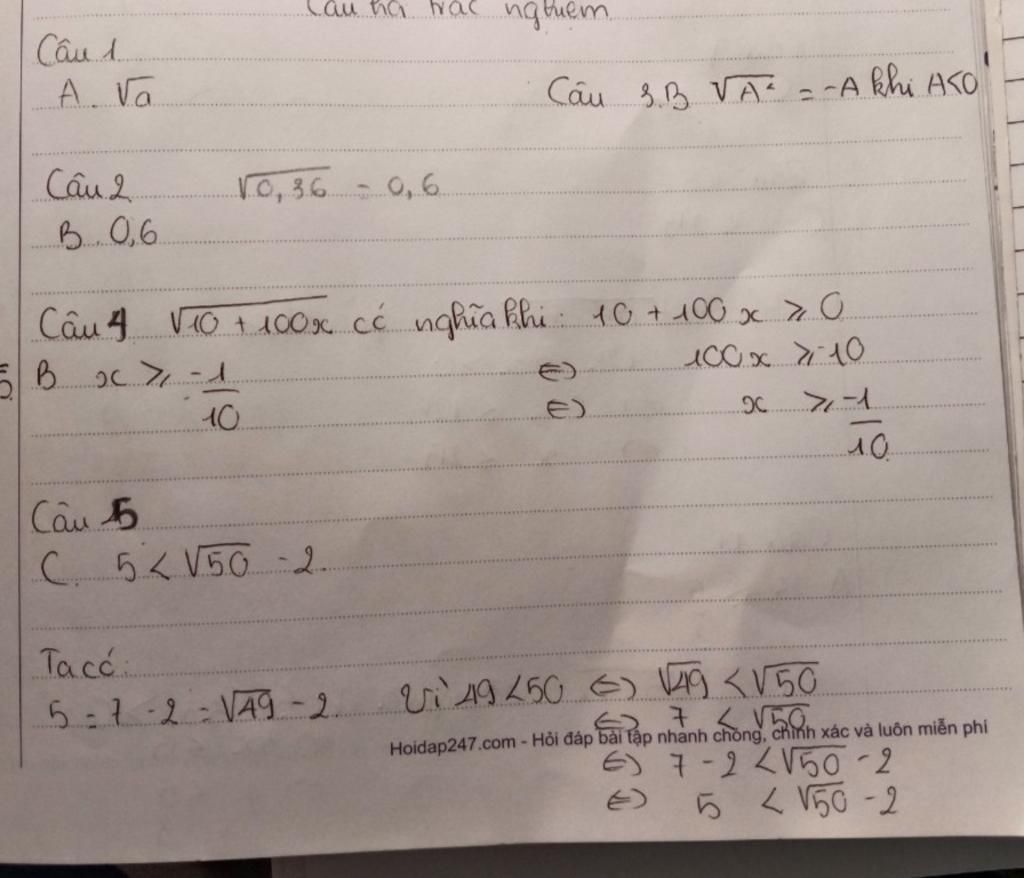 Câu hỏi trắc nghiệm
Câu 1
A. √a
Câu 3.B √A² = -A khi A<0
Câu 2 √0,36 = 0,6
B. 0,6
Câu 4 √10 + 100x có nghĩa khi: 10 + 100x ≥ 0
5. B x ≥ -1/10 ⇔ 100x ≥ -10
⇔ x ≥ -1/10
Câu 5
C. 5 < √50 - 2.
Ta có:
5 = 7 - 2 = √49 - 2. Vì 49 < 50 ⇔ √49 < √50
⇔ 7 < √50
Hoidap247.com - Hỏi đáp bài tập nhanh chóng, chính xác và luôn miễn phí
⇔ 7 - 2 < √50 - 2
⇔ 5 < √50 - 2